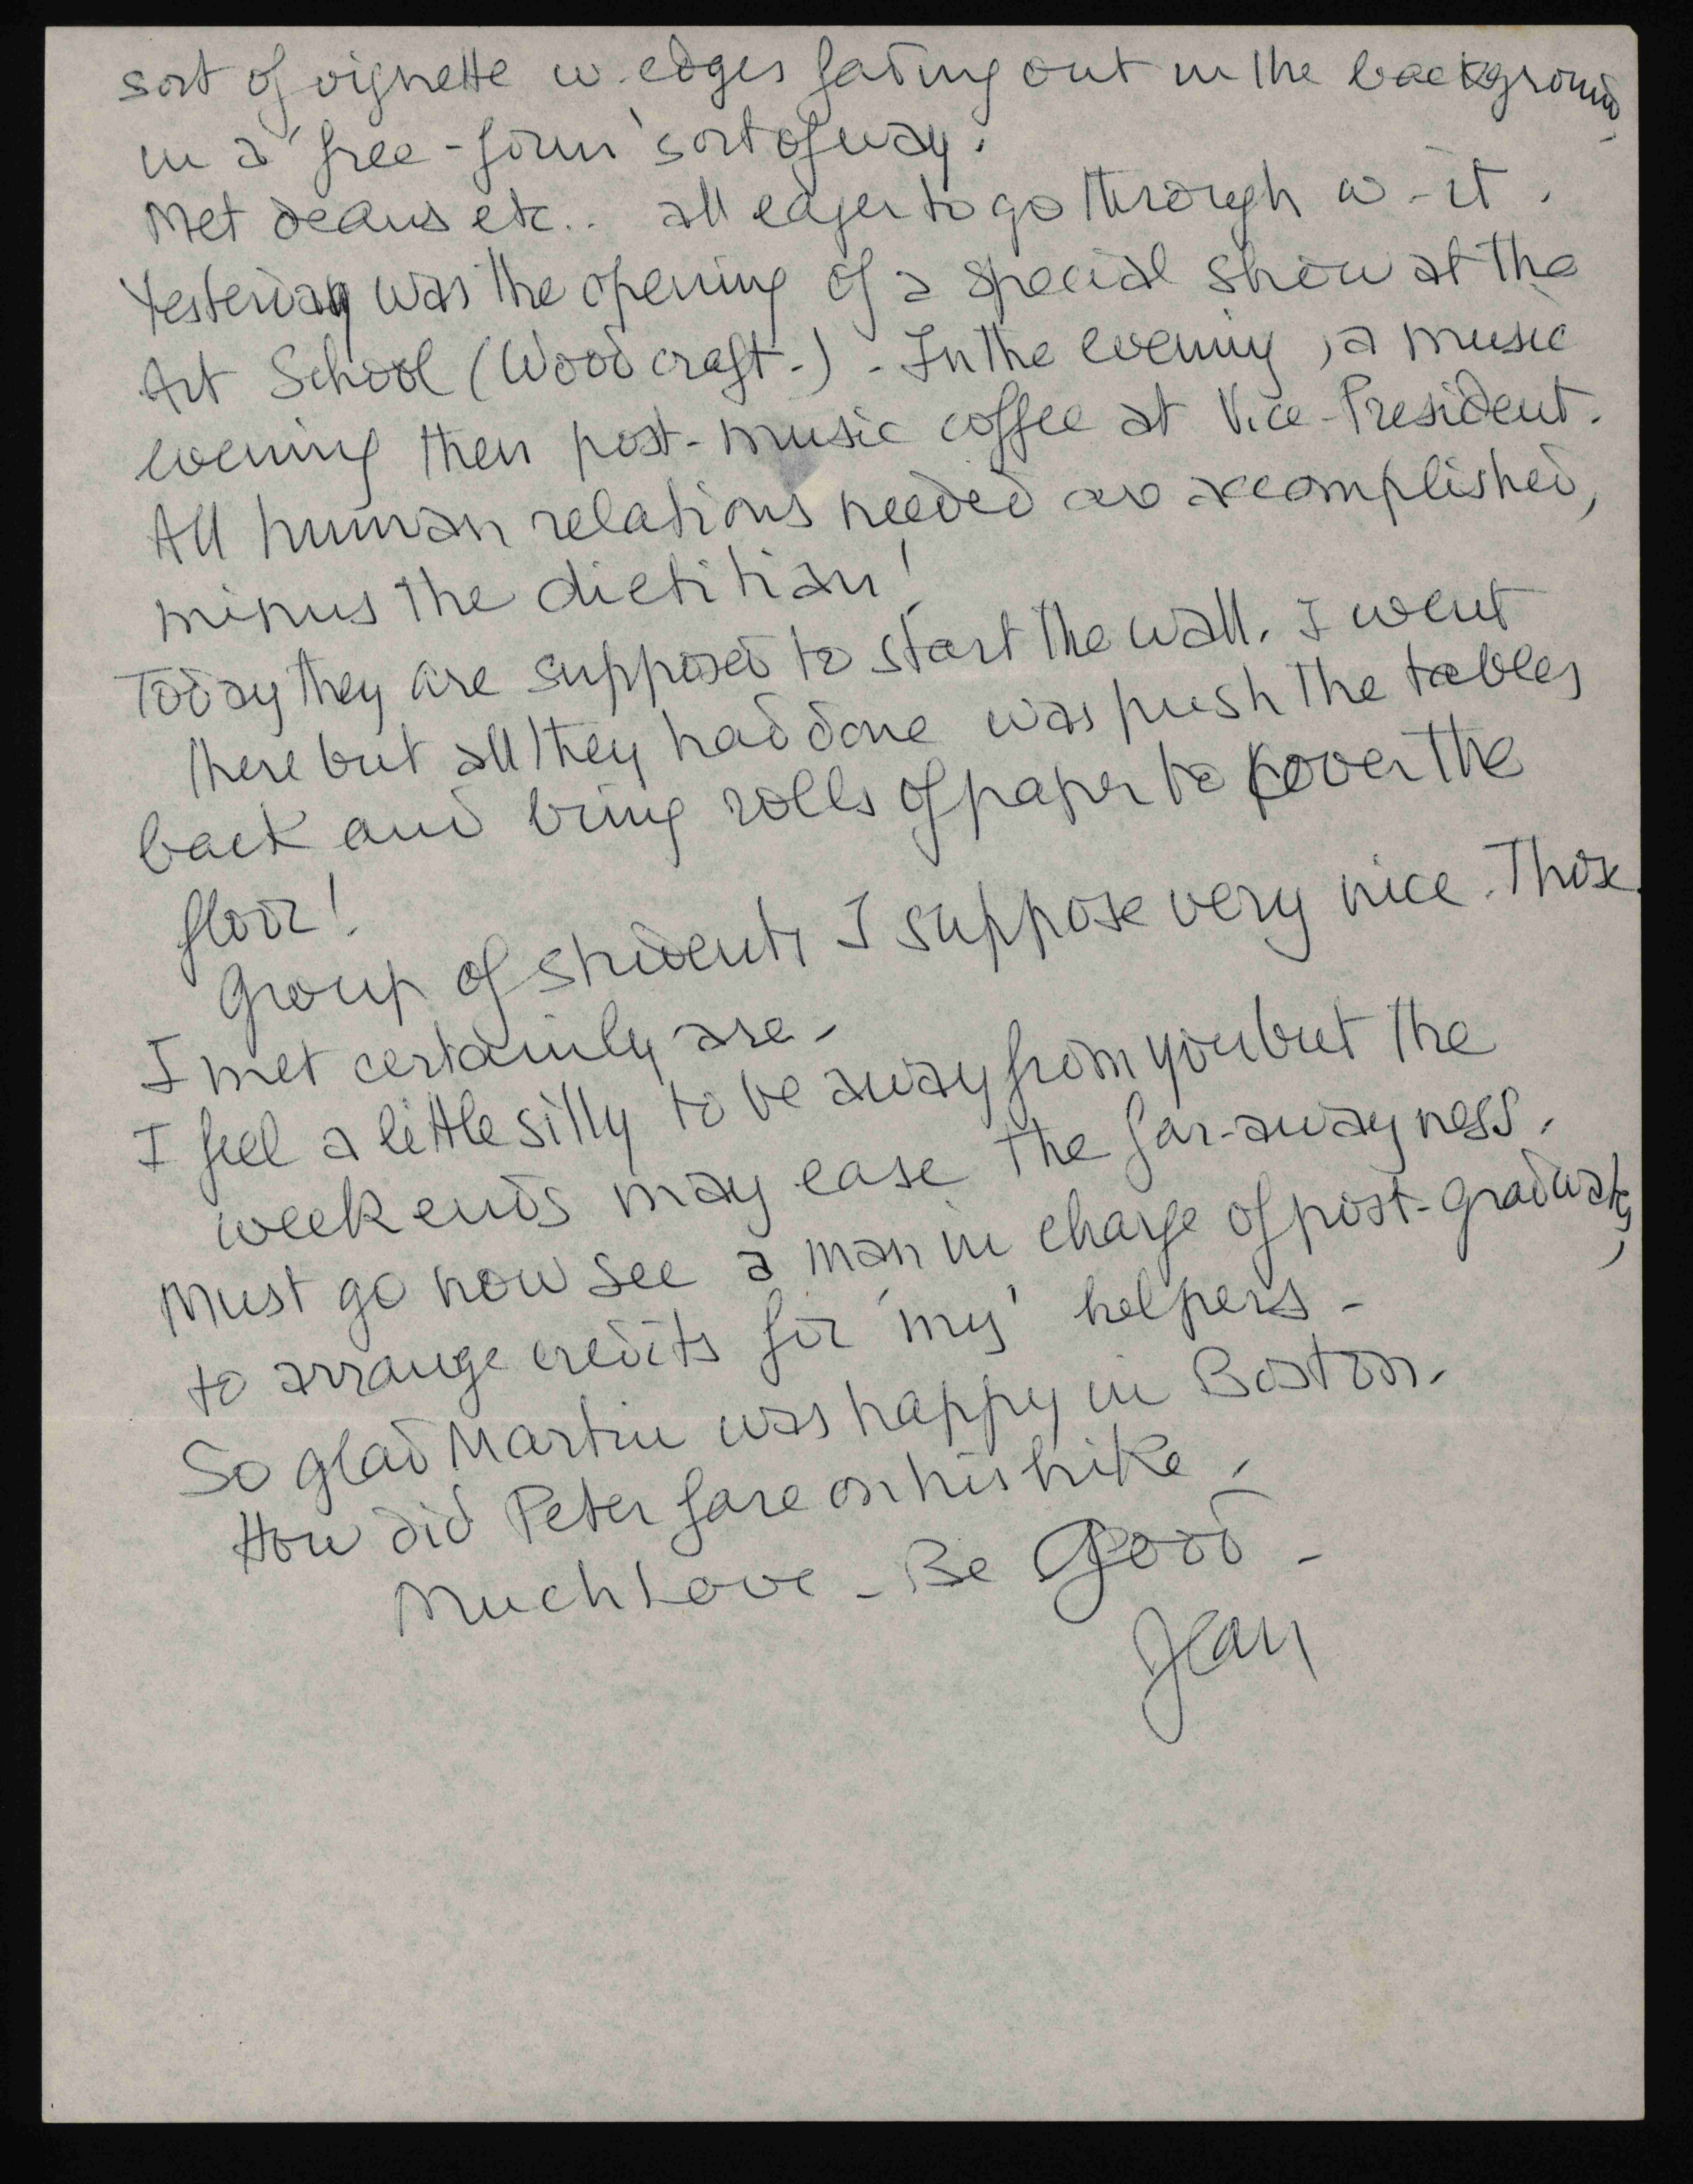 sort of vignette w. edges fading out in the background
in a 'free-form' sort of way.
Met deans etc.. all eager to go through w-it.
Yesterday was the opening of a special show at the
Art School (Wood craft.). In the evening, a music
evening then post-music coffee at Vice-President.
All human relations needed are accomplished,
minus the dietitian!
Today they are supposed to start the wall. I went
there but all they had done was push the tables
back and bring rolls of paper to cover the
floor!
Group of students I suppose very nice. Those
I met certainly are-
I feel a little silly to be away from you but the
weekends may ease the far-away ness.
Must go now see a man in charge of post-graduates,
to arrange credits for 'my' helpers-
So glad Martin was happy in Boston.
How did Peter fare on his hike.
Much Love - Be Good -
Jean